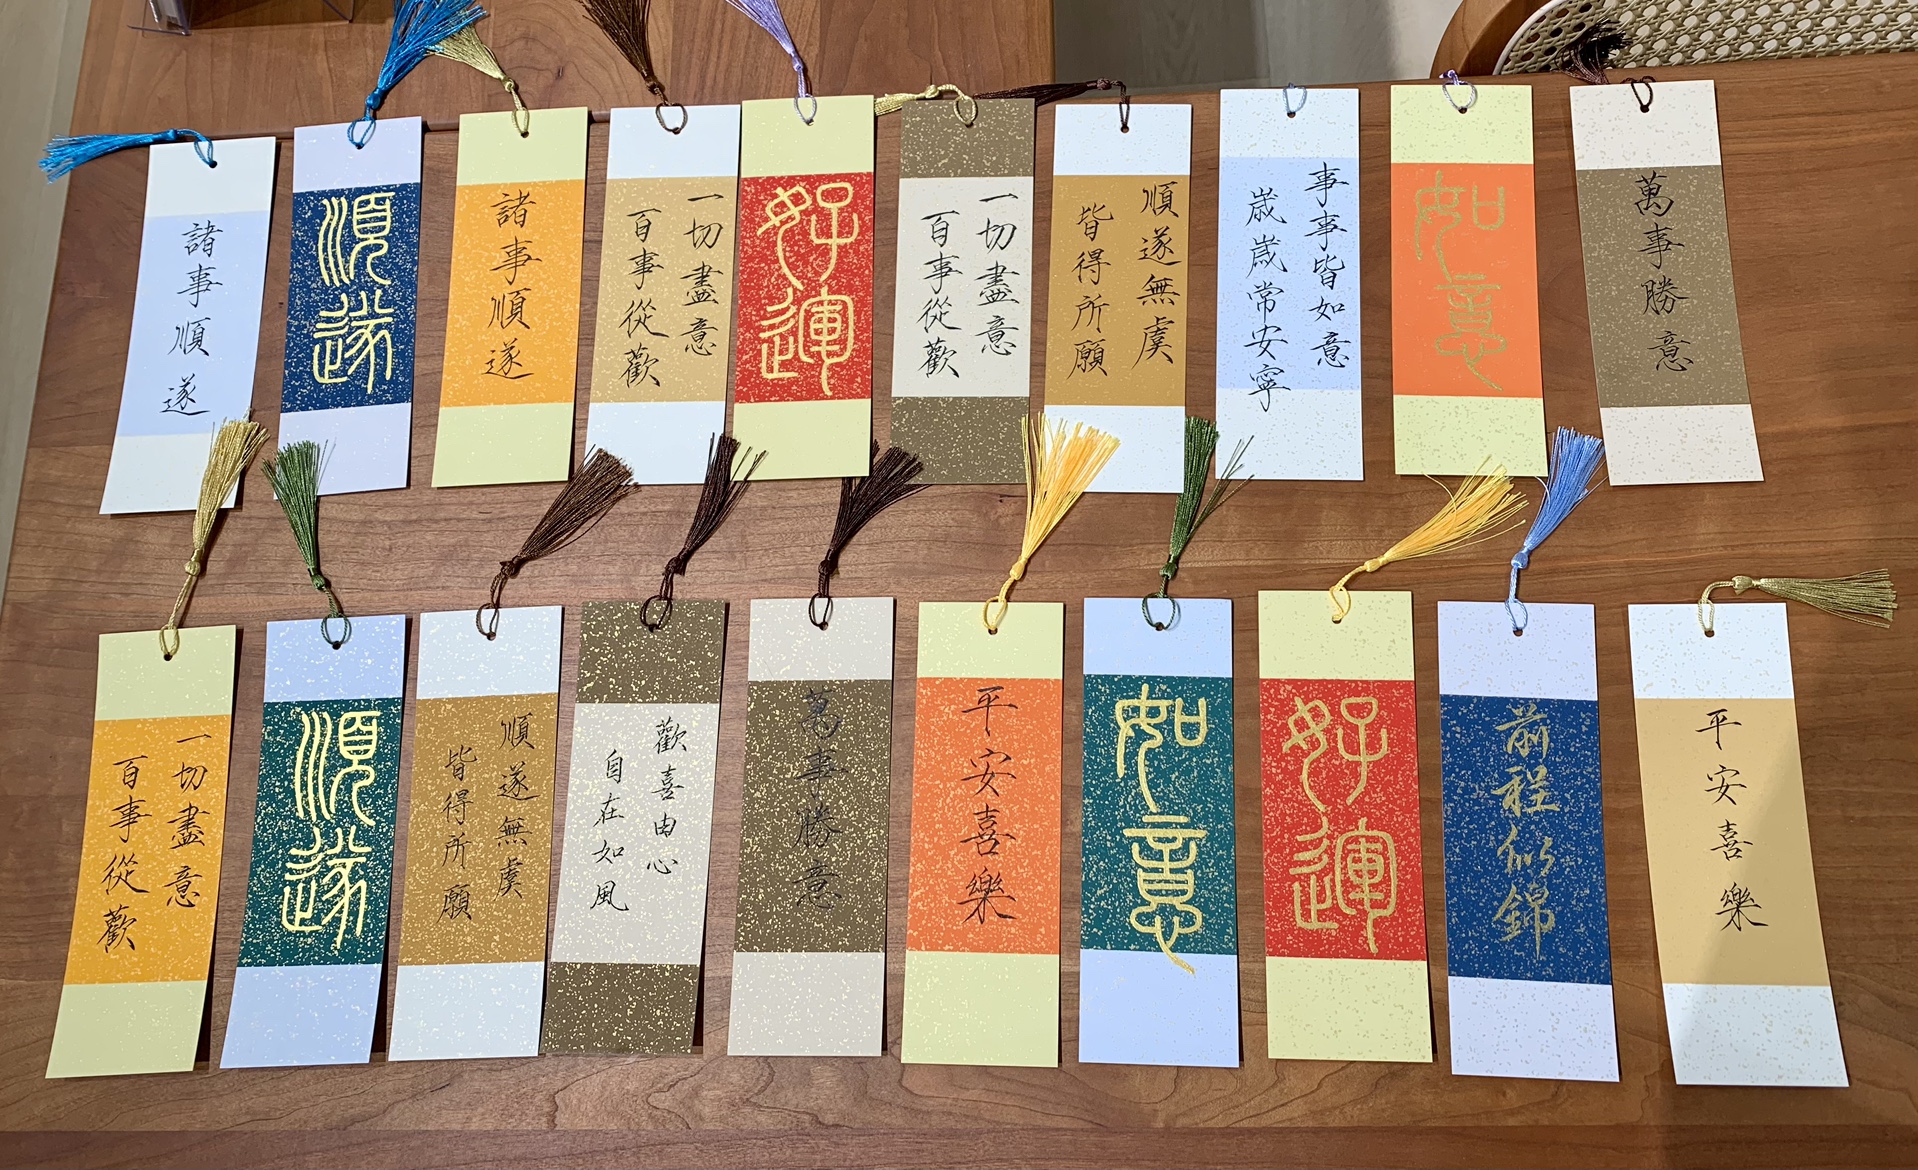 諸事順遂
順遂
諸事順遂
一切盡意
百事從歡
好運
一切盡意
百事從歡
順遂無虞
皆得所願
事事皆如意
歲歲常安寧
如意
萬事勝意
一切盡意
百事從歡
順遂
順遂無虞
皆得所願
歡喜由心
自在如風
萬事勝意
平安喜樂
如意
好運
前程似錦
平安喜樂